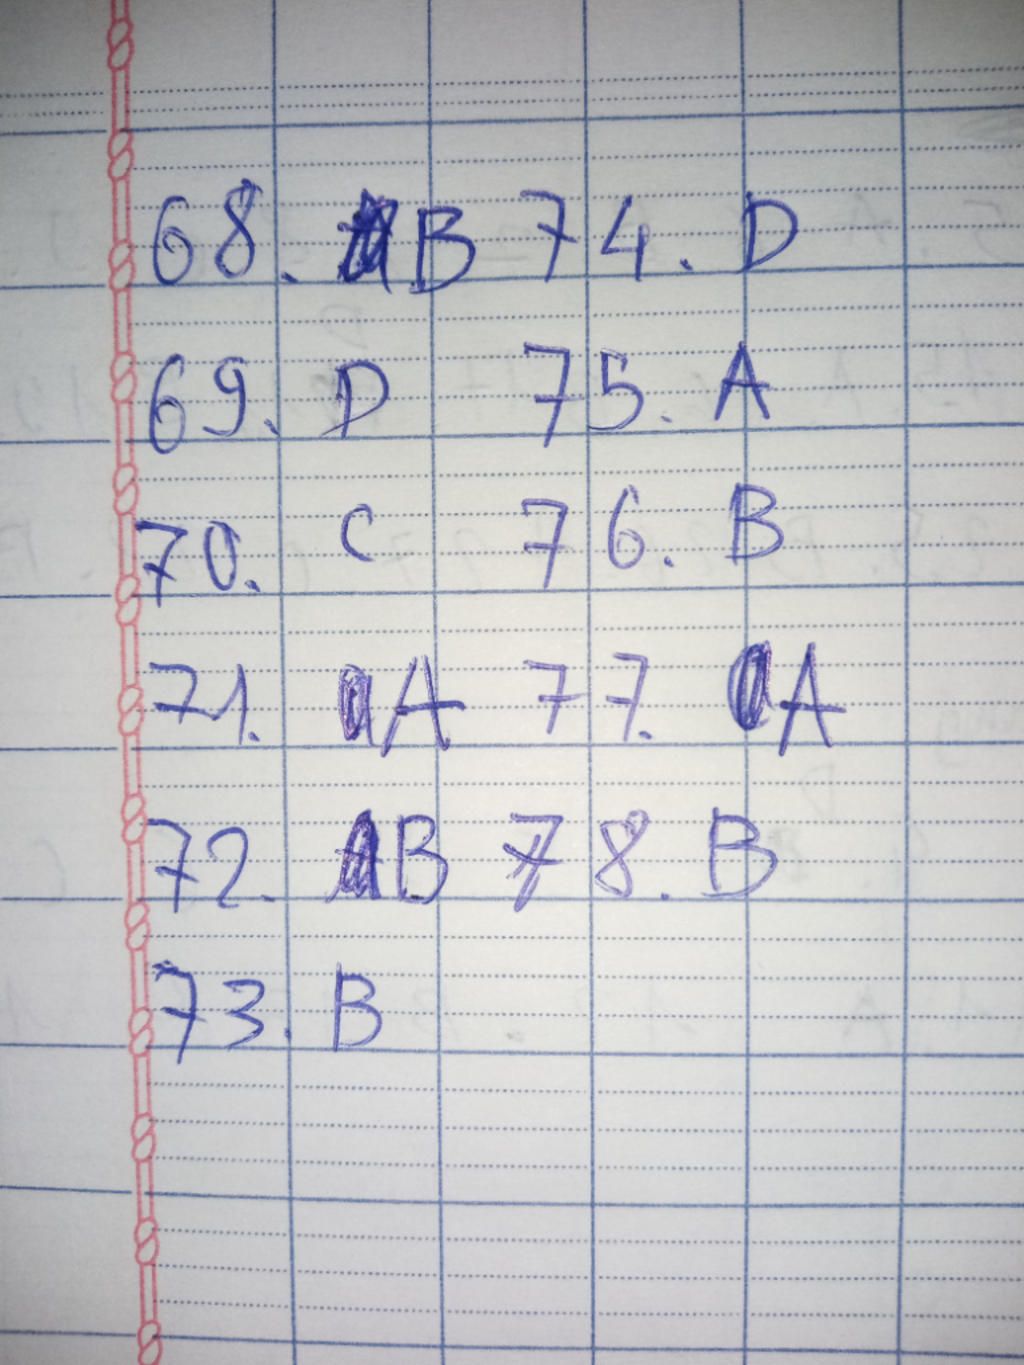 68. B 74. D
69. D 75. A
70. C 76. B
71. A 77. A
72. B 78. B
73. B